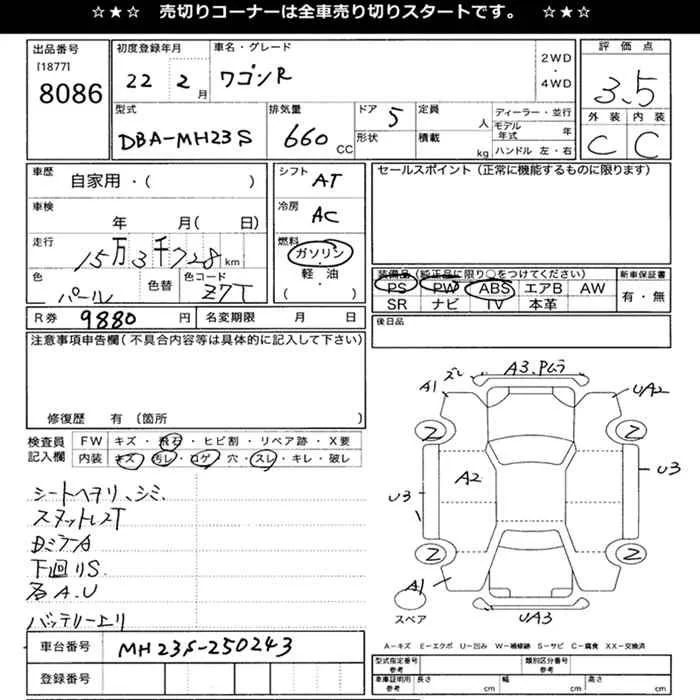 ☆★☆ 売切りコーナーは全車売り切りスタートです。 ☆★☆
出品番号
[1877]
8086
初度登録年月
22 2 月
車名・グレード
ワゴンR
2WD
・
4WD
評価点
3.5
外装 内装
C C
型式
DBA-MH23S
排気量
660 CC
ドア 5
形状
定員
人
積載
kg
ディーラー・並行
モデル年式 年
ハンドル 左・右
車歴
自家用・( )
車検
年 月( 日)
走行
15万3千728 km
色
パール
色替
色コード
Z7T
シフト
AT
冷房
AC
燃料
ガソリン
・
軽・油
( )
セールスポイント(正常に機能するものに限ります)
装備品(純正品に限り○をつけてください)
PS PW ABS エアB AW
SR ナビ TV 本革
新車保証書
有・無
後日品
R券 9880 円
名変期限 月 日
注意事項申告欄(不具合内容等は具体的に記入して下さい)
修復歴 有 (箇所 )
検査員記入欄
FW キズ・飛石・ヒビ割・リペア跡・X要
内装 キズ・汚レ・コゲ・穴・スレ・キレ・破レ
シートヘタリ、シミ
下回りS
A.U
車台番号
MH23S-250243
登録番号
A1
ズレ
A3.Pムラ
UA2
2
2
A2
U3
U3
2
2
A1
UA3
スペア
A-キズ E-エクボ U-凹み W-補修跡 S-サビ C-腐食 XX-交換済
型式指定番号
参考
類別区分番号
参考
車庫証明用
参考
長さ cm
幅 cm
高さ cm